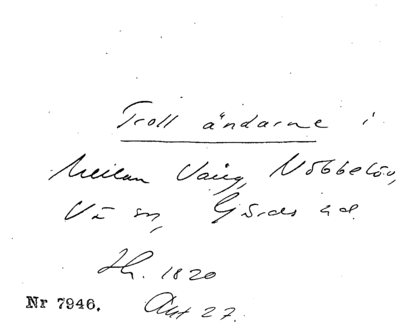 Troll ändarne i
Mellan Vång, Nöbbelöv,
V:a sn, Gärds hd.
Jh. 1820
Nr 7946. Akt 27.